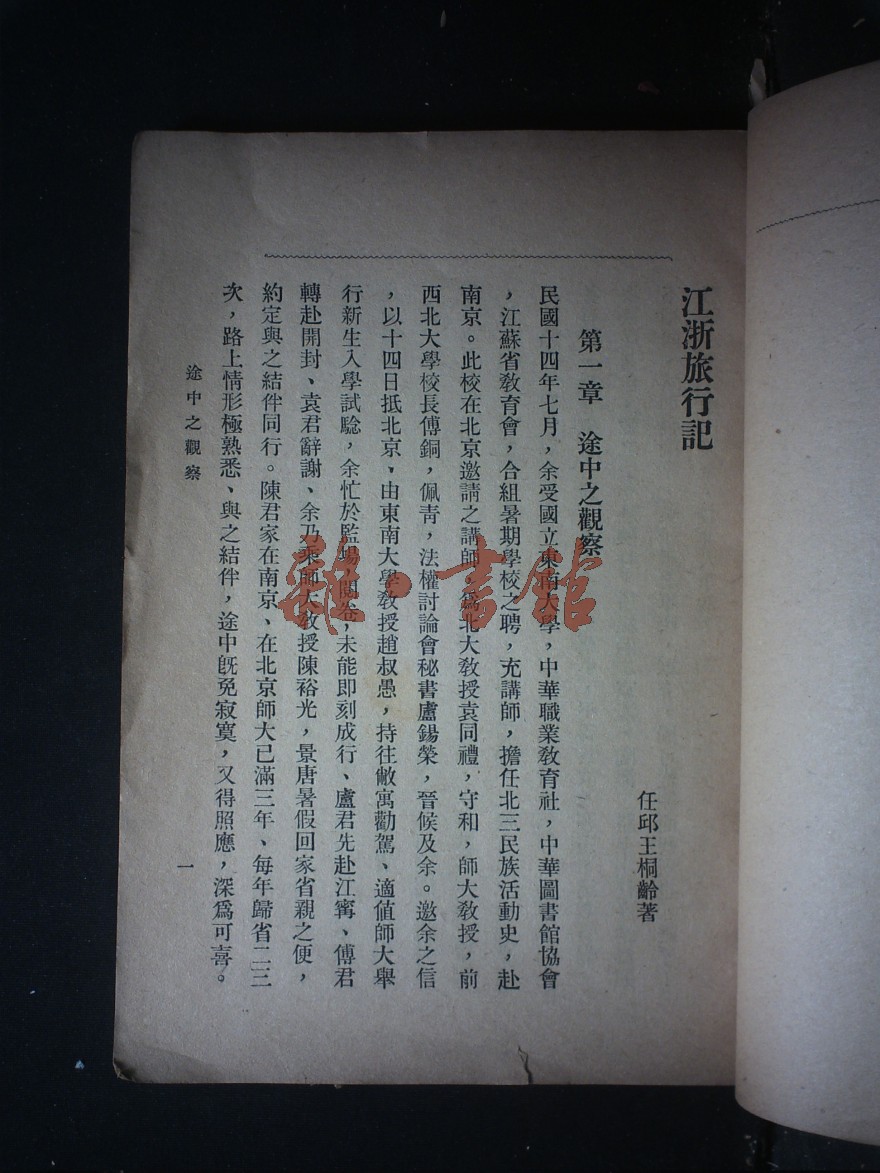 江浙旅行記
任邱王桐齡著
第一章　途中之觀察
民國十四年七月，余受國立東南大學，中華職業敎育社，中華圖書館協會
，江蘇省敎育會，合組暑期學校之聘，充講師，擔任北三民族活動史，赴
南京。此校在北京邀請之講師，爲北大敎授袁同禮，守和，師大敎授，前
西北大學校長傅銅，佩青，法權討論會秘書盧錫榮，晉候及余。邀余之信
，以十四日抵北京、由東南大學敎授趙叔愚，持往敝寓勸駕、適值師大舉
行新生入學試驗，余忙於監場，閱卷，未能即刻成行、盧君先赴江寗、傅君
轉赴開封、袁君辭謝、余乃乘師大敎授陳裕光，景唐暑假回家省親之便，
約定與之結伴同行。陳君家在南京、在北京師大已滿三年、每年歸省二三
次，路上情形極熟悉、與之結伴，途中旣免寂寞，又得照應，深爲可喜。
途中之觀察
一
雜·書館